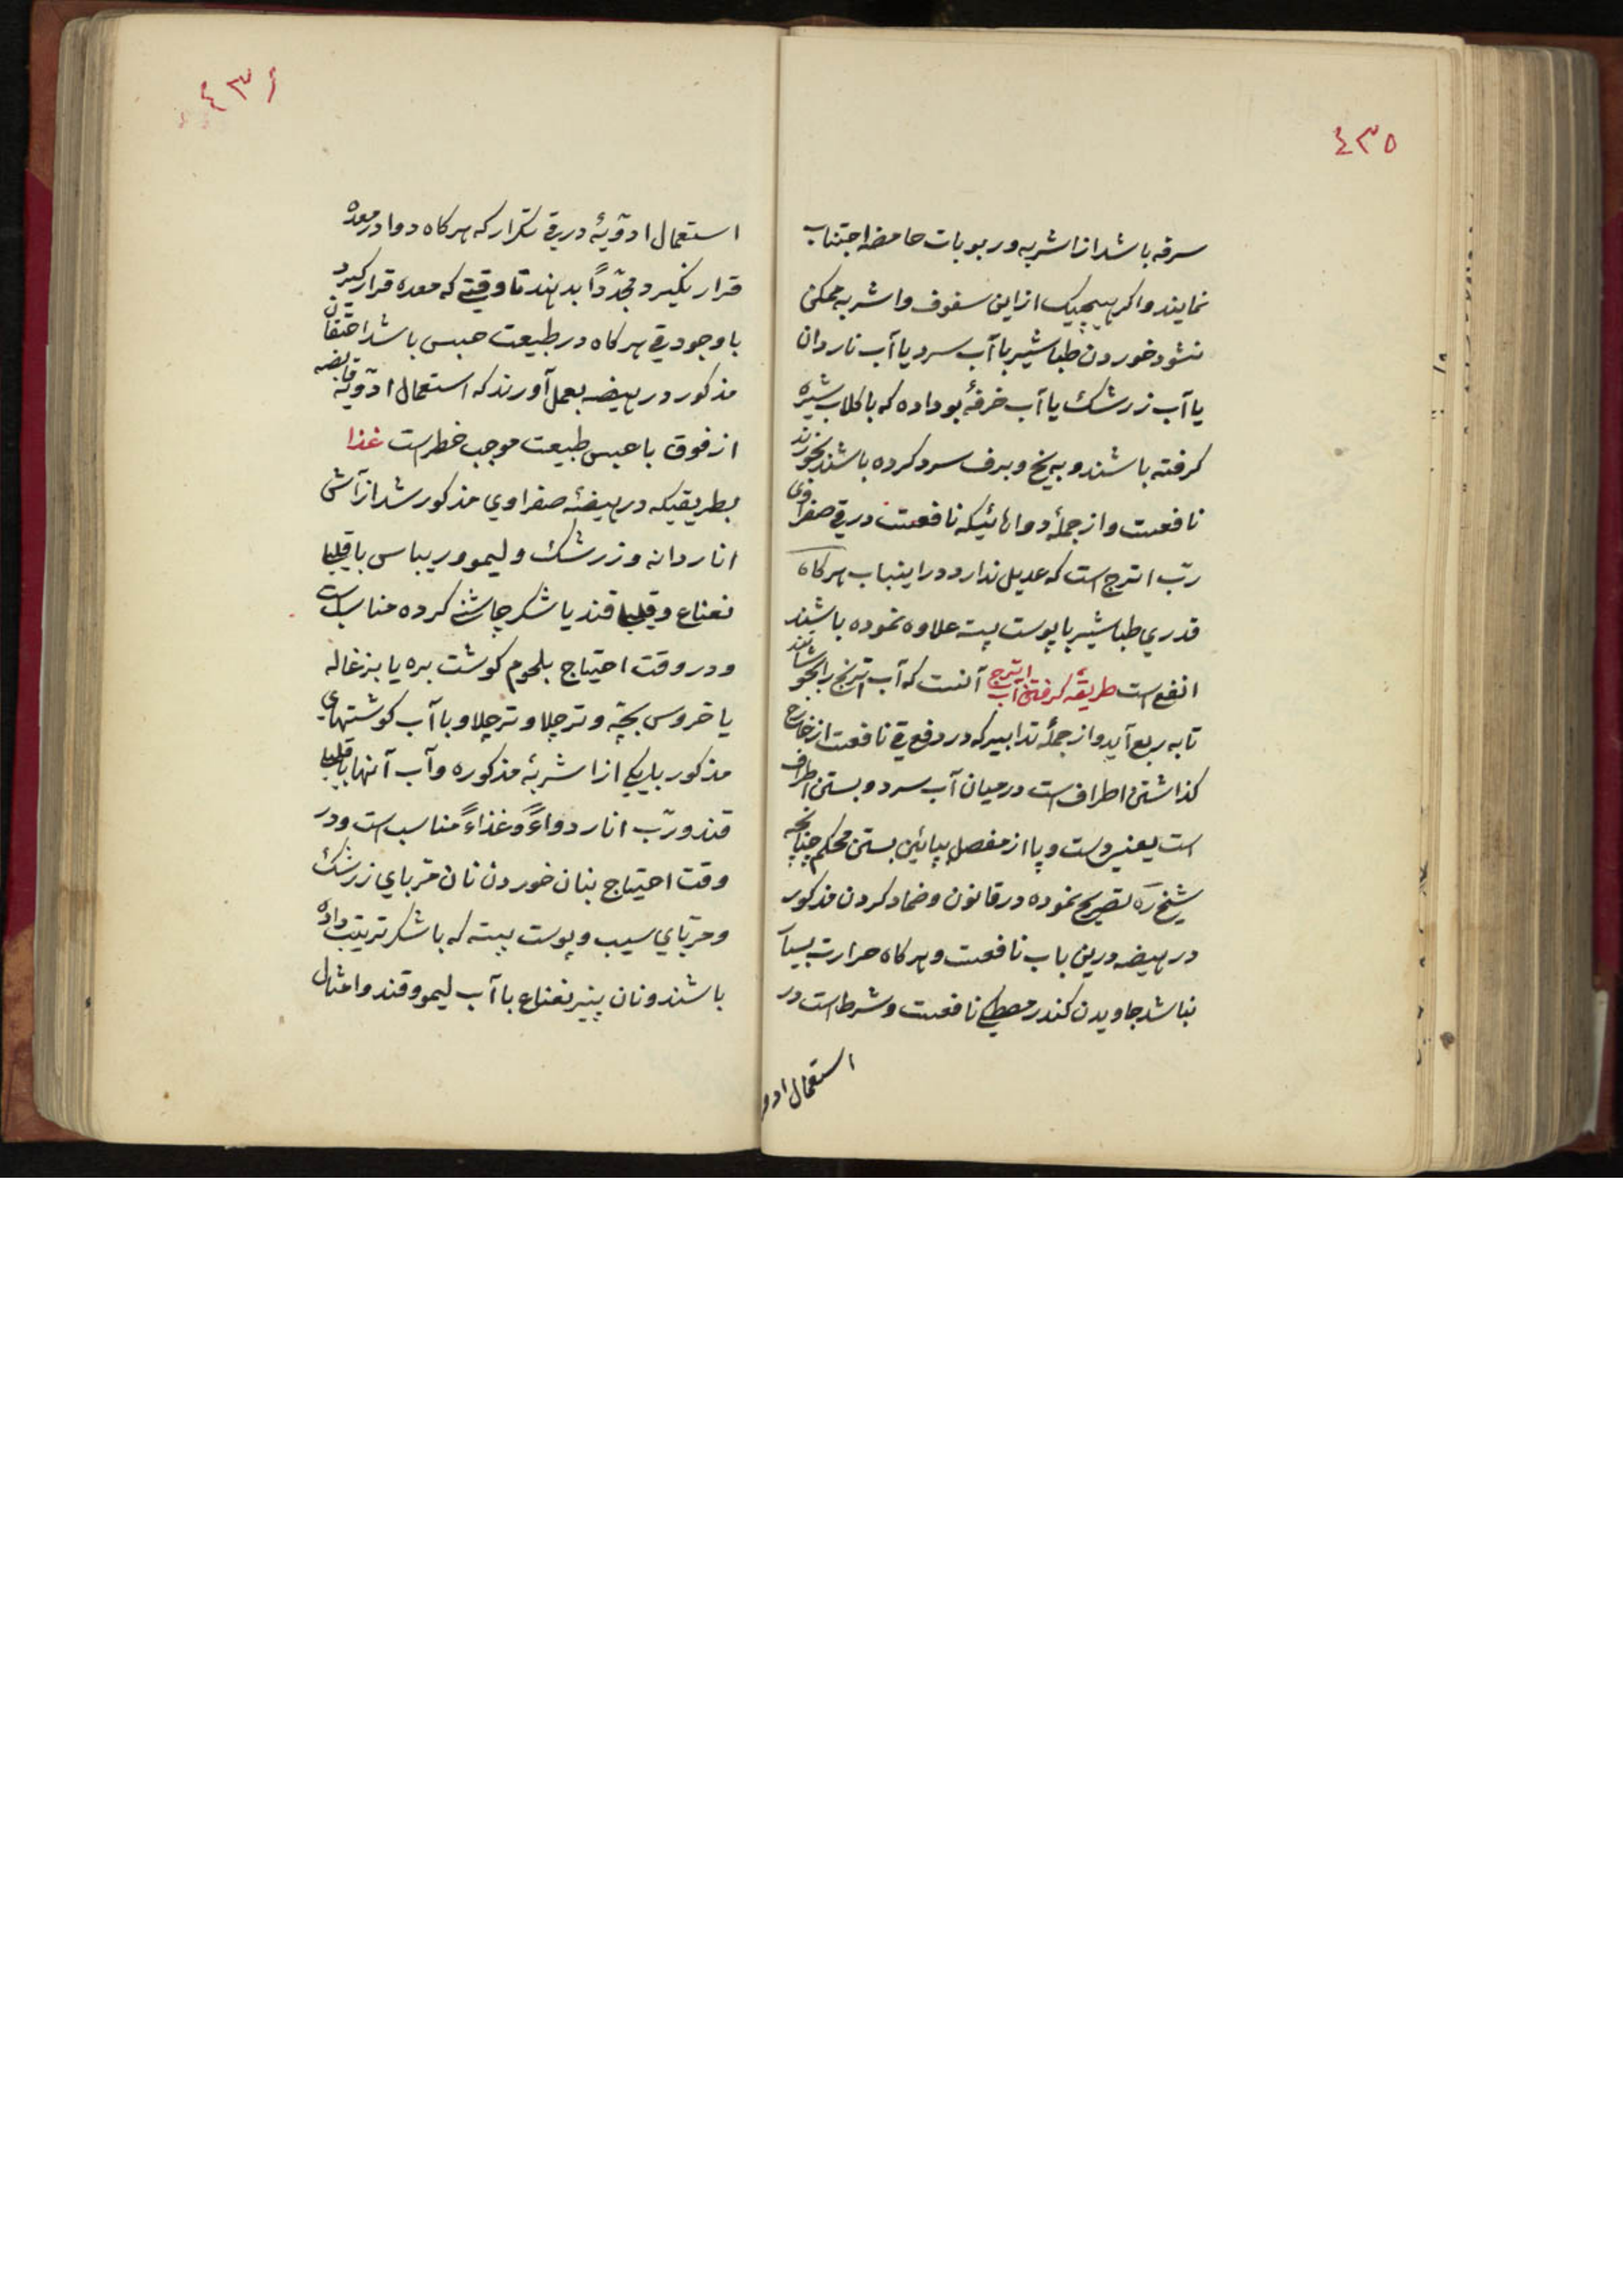 ٤٣٥
سرفه باشد از اشربه و ربوبات حامضه اجتناب
نمایند و اکر هیچیک از این سفوف و اشربه ممکن
نشود خوردن طباشیر با آب سرد یا آب ناردان
یا آب زرشک یا آب خرفهٔ بو داده که با کلاب شیره
کرفته باشند و به یخ و برف سرد کرده باشند بخورند
نافعست و از جملهٔ دواهائیکه نافعست در قی صفراوی
ربّ اترج است که عدیل ندارد در اینباب هرکاه
قدری طباشیر با پوست پسته علاوه نموده باشند
انفع است طریقهٔ کرفتن آب اترج آنست که آب اترنج را بجوشانند
تا به ربع آید و از جملهٔ تدابیر که در دفع قی نافعست از خارج
کذاشتن اطراف است در میان آب سرد و بستن اطراف
است یعنی دست و پا از مفصل بپائین بستن محکم چنانچه
شیخ ره تصریح نموده در قانون و ضماد کردن مذکور
در هیضه درین باب نافعست و هرکاه حرارت بسیار
نباشد جاویدن کندر مصطکی نافعست و شرط است در
استعمال ادو
٤٣٦
استعمال ادویهٔ در قی تکرار که هرکاه دوا در معده
قرار نکیرد مجدّداً بدهند تا وقتی که معده قرار کیرد
با وجود قی هرکاه در طبیعت حبس باشد احتقان
مذکور در هیضه بعمل آورند که استعمال ادویهٔ قابضه
از فوق با حبس طبیعت موجب خطر است غذا
بطریقیکه در هیضهٔ صفراوی مذکور شد از آش
انار دانه و زرشک و لیمو و ریباس با قلیا
نعناع و قلیا قند یا شکر چاشنی کرده مناسب است
و در وقت احتیاج بلحوم کوشت بره یا بزغاله
یا خروس بچّه و ترچلاو و ترچلاو با آب کوشتهای
مذکور با یکی از اشربهٔ مذکوره و آب آنها با قلیا
قند و ربّ انار دواءً و غذاءً مناسب است و در
وقت احتیاج بنان خوردن نان مربّای زرشک
و مربّای سیب و پوست پسته که با شکر ترتیب داده
باشند و نان پنیر نعناع با آب لیمو و قند و امثال